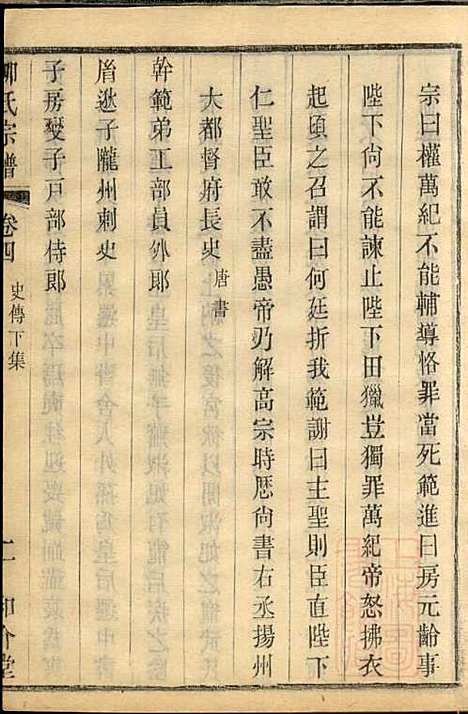 宗曰權萬紀不能輔導恪罪當死範進曰房元齡事
陛下尙不能諫止陛下田獵豈獨罪萬紀帝怒拂衣
起頃之召謂曰何廷折我範謝曰主聖則臣直陛下
仁聖臣敢不盡愚帝乃解高宗時歴尙書右丞揚州
大都督府長史唐書
幹範弟工部員外郎
㢙逖子隴州刺史
子房燮子戸部侍郎
柳氏宗譜 卷四 史傳下集